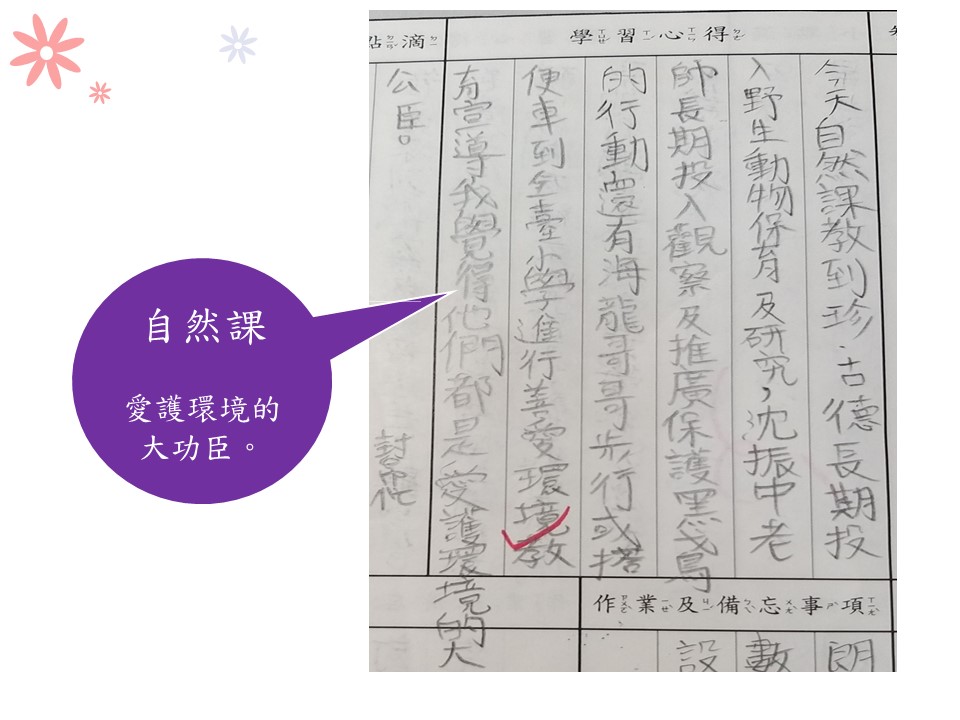 自然課
愛護環境的
大功臣。
學習心得
今天自然課教到珍·古德長期投
入野生動物保育及研究,沈振中老
師長期投入觀察及推廣保護黑鳶
的行動還有海龍哥哥步行或搭
便車到全臺小學進行善愛環境教
育宣導我覺得他們都是愛護環境的大
公臣。
點滴
作業及備忘事項
朗
數
設